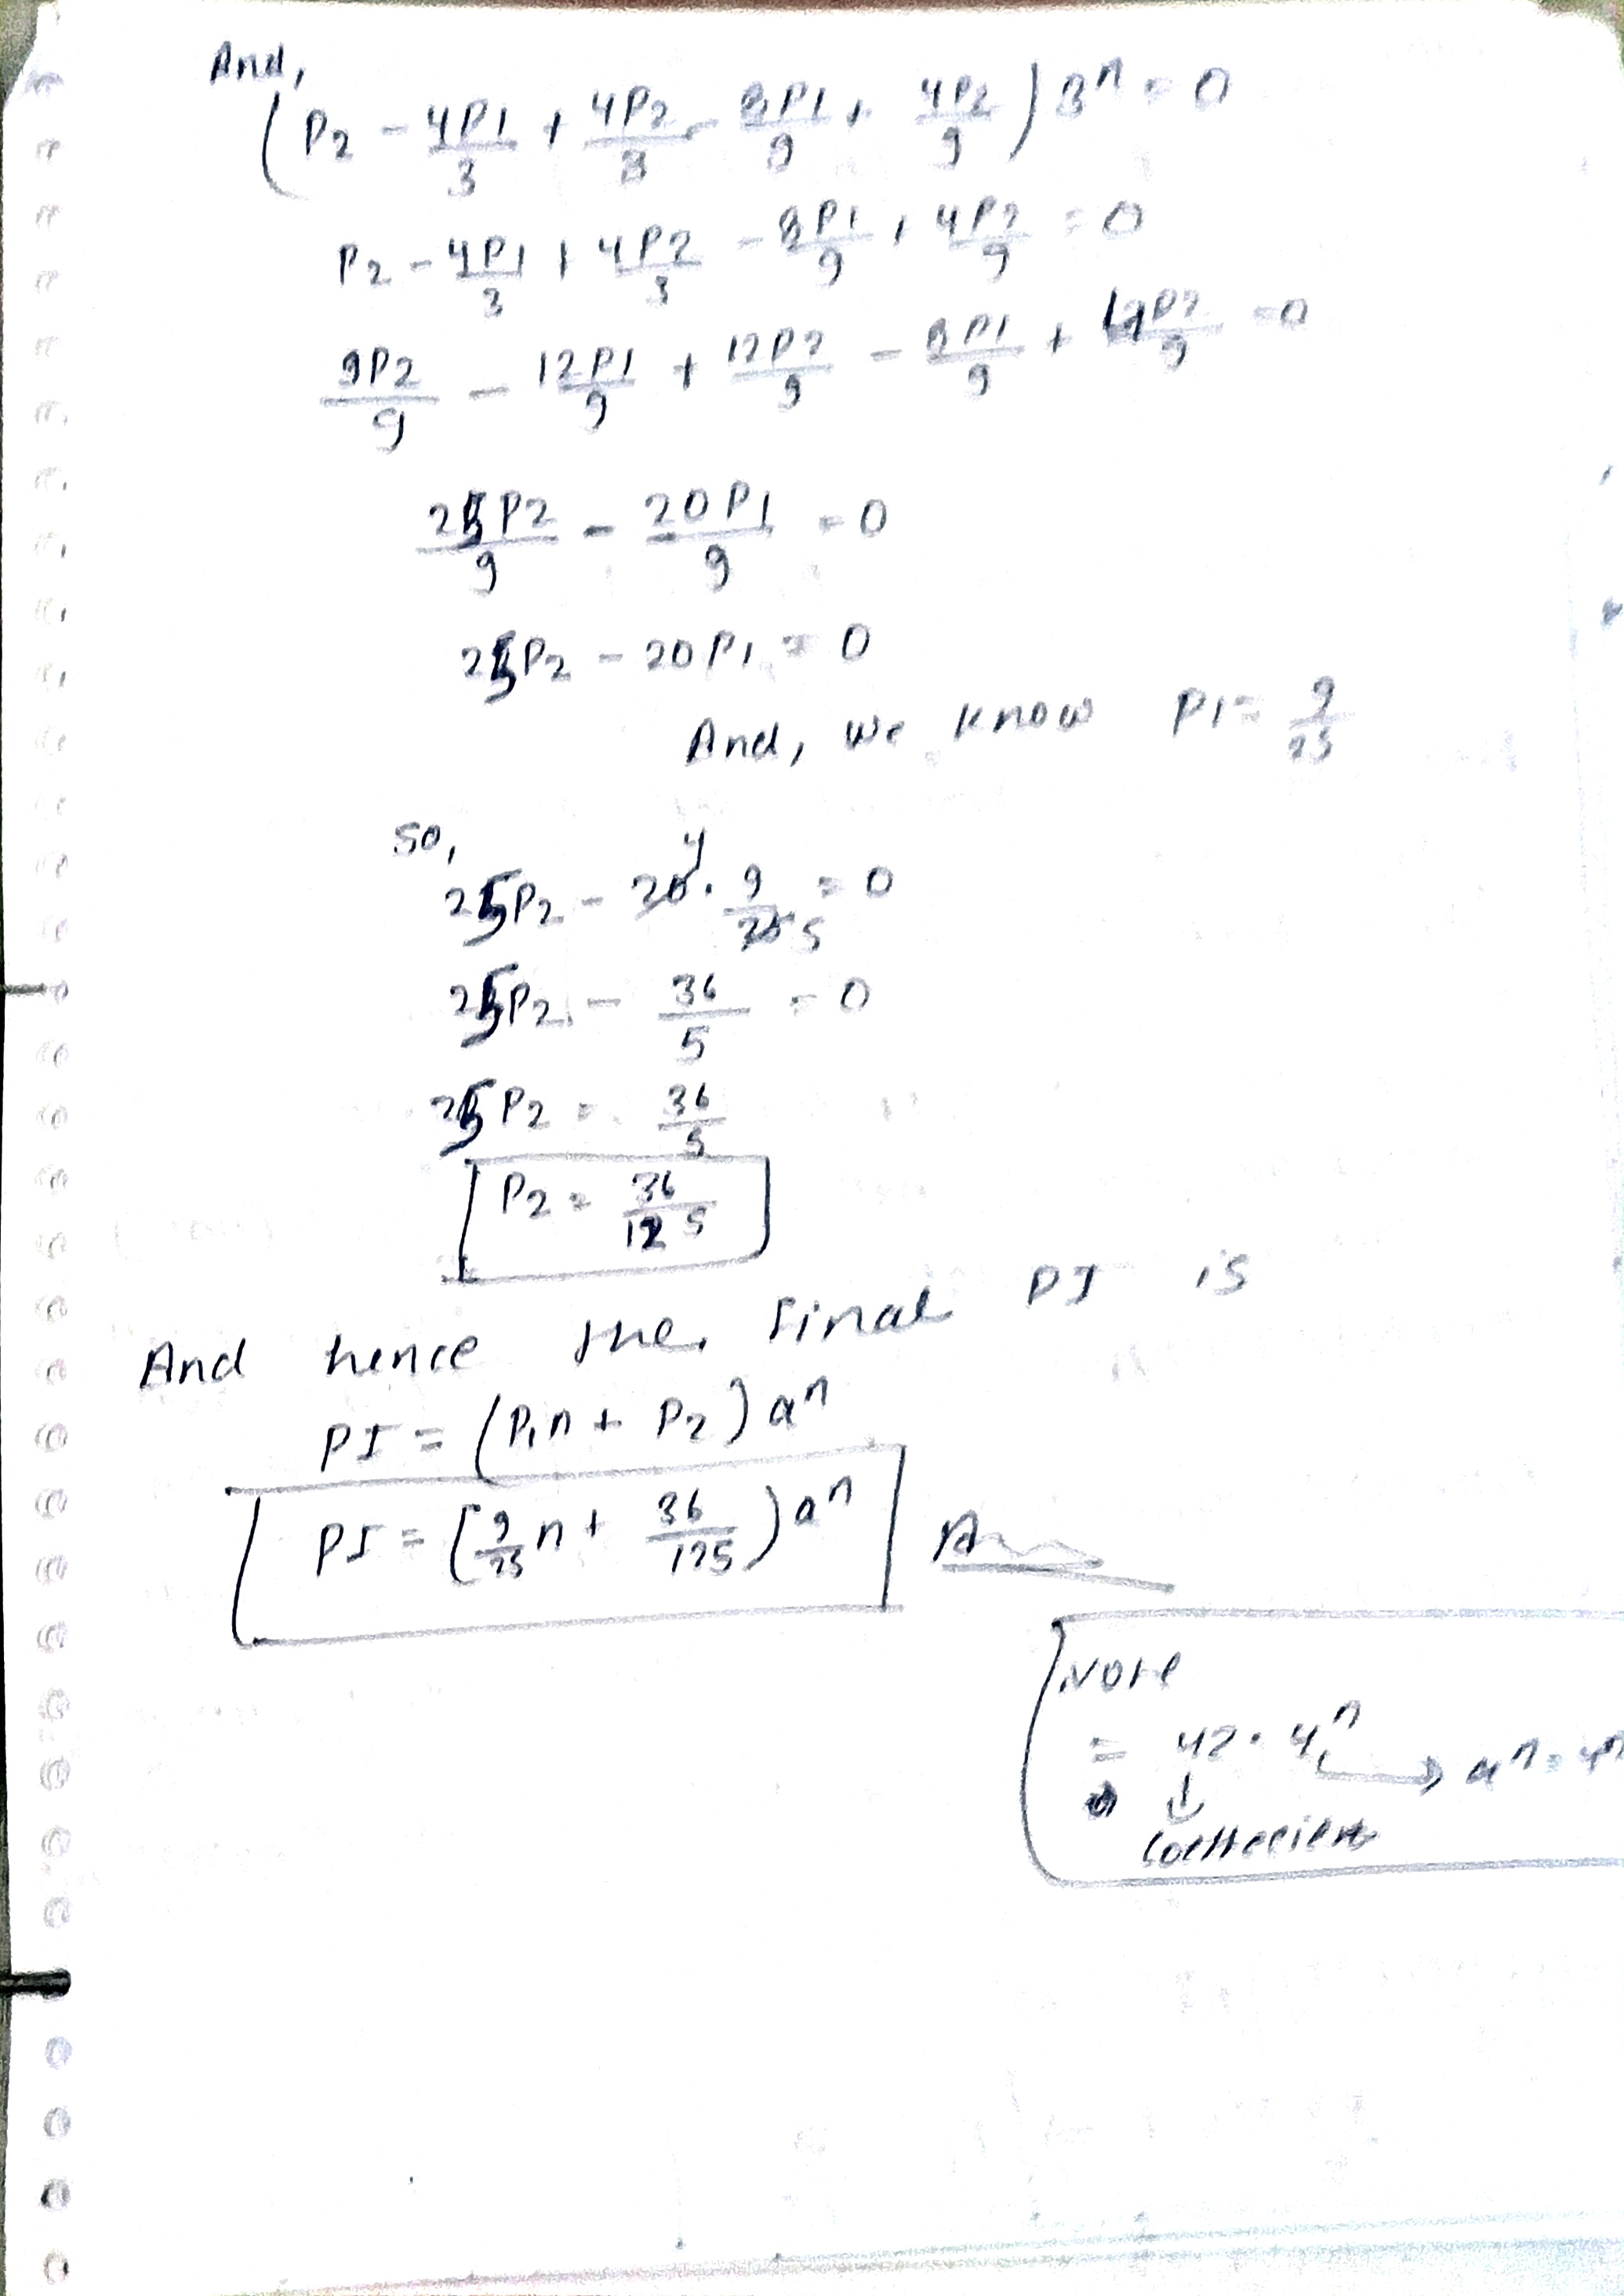 And,
(P2 - 4P1/3 + 4P2/3 - 8P1/9 + 4P2/9) 3^n = 0
P2 - 4P1/3 + 4P2/3 - 8P1/9 + 4P2/9 = 0
9P2/9 - 12P1/9 + 12P2/9 - 8P1/9 + 4P2/9 = 0
25P2/9 - 20P1/9 = 0
25P2 - 20P1 = 0
And, we know P1 = 9/25
so,
25P2 - 20 4 . 9/25 5 = 0
25P2 - 36/5 = 0
25P2 = 36/5
P2 = 36/125
And hence the final PI is
PI = (P1n + P2) a^n
PI = (9/25 n + 36/125) a^n
Note
= 42 . 4^n → a^n = 4^n
↓
coefficient